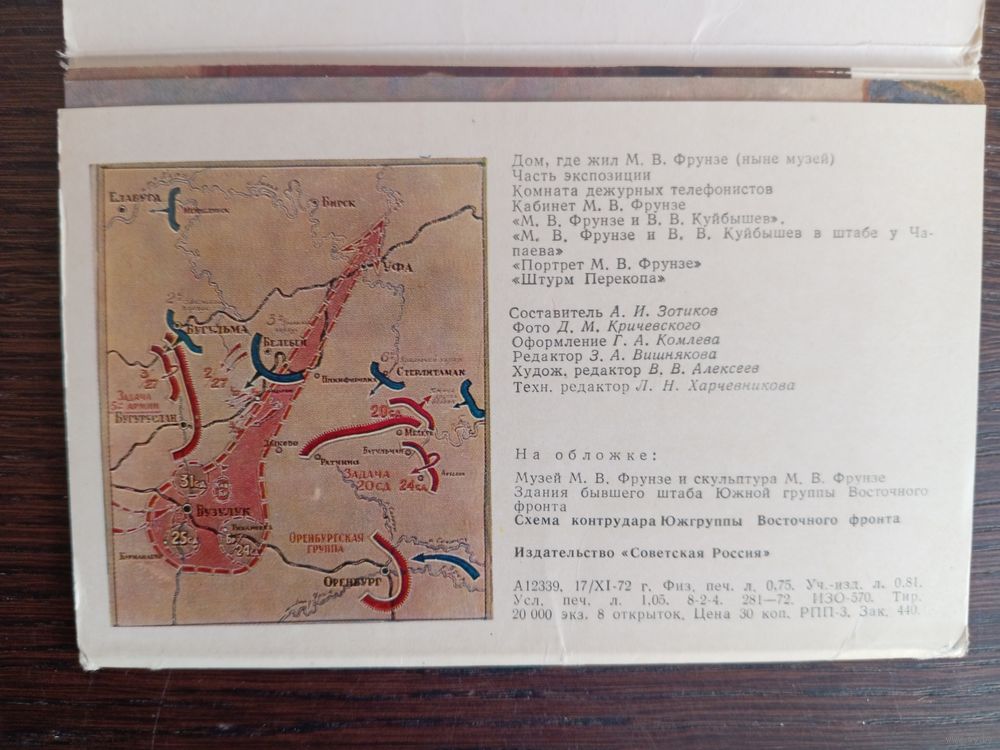 Елабуга
Бирск
УФА
2а
Бугульма
3а
Белебей
6а
Стерлитамак
3/27
2/27
Задача
5й армии
Бугуруслан
20сд
Дюково
Ратчино
Задача
20сд
24сд
31сд
Бузулук
25сд
24сд
Оренбургская
группа
Оренбург
Дом, где жил М. В. Фрунзе (ныне музей)
Часть экспозиции
Комната дежурных телефонистов
Кабинет М. В. Фрунзе
«М. В. Фрунзе и В. В. Куйбышев».
«М. В. Фрунзе и В. В. Куйбышев в штабе у Ча-
паева»
«Портрет М. В. Фрунзе»
«Штурм Перекопа»
Составитель А. И. Зотиков
Фото Д. М. Кричевского
Оформление Г. А. Комлева
Редактор З. А. Вишнякова
Худож. редактор В. В. Алексеев
Техн. редактор Л. Н. Харчевникова
На обложке:
Музей М. В. Фрунзе и скульптура М. В. Фрунзе
Здания бывшего штаба Южной группы Восточного
фронта
Схема контрудара Южгруппы Восточного фронта
Издательство «Советская Россия»
А12339. 17/XI-72 г. Физ. печ. л. 0,75. Уч.-изд. л. 0,81.
Усл. печ. л. 1,05. 8-2-4. 281—72. ИЗО-570. Тир.
20 000 экз. 8 открыток. Цена 30 коп. РПП-3. Зак. 440.